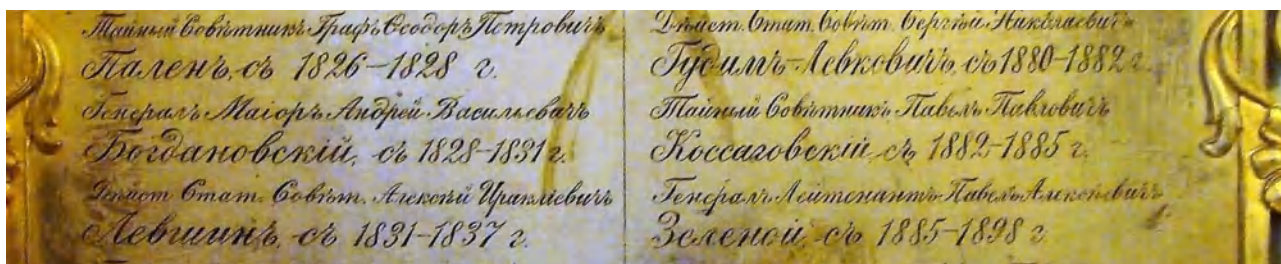 Тайный Совѣтникъ Графъ Ѳеодоръ Петровичъ
Паленъ, съ 1826–1828 г.
Генералъ Маіоръ Андрей Васильевичъ
Богдановскій, съ 1828–1831 г.
Дѣйст. Стат. Совѣт. Алексѣй Иракліевичъ
Левшинъ, съ 1831–1837 г.
Дѣйст. Стат. Совѣт. Сергѣй Николаевичъ
Гудимъ-Левковичъ, съ 1880–1882 г.
Тайный Совѣтникъ Павелъ Павловичъ
Коссаговскій, съ 1882–1885 г.
Генералъ Лейтенантъ Павелъ Алексѣевичъ
Зеленой, съ 1885–1898 г.